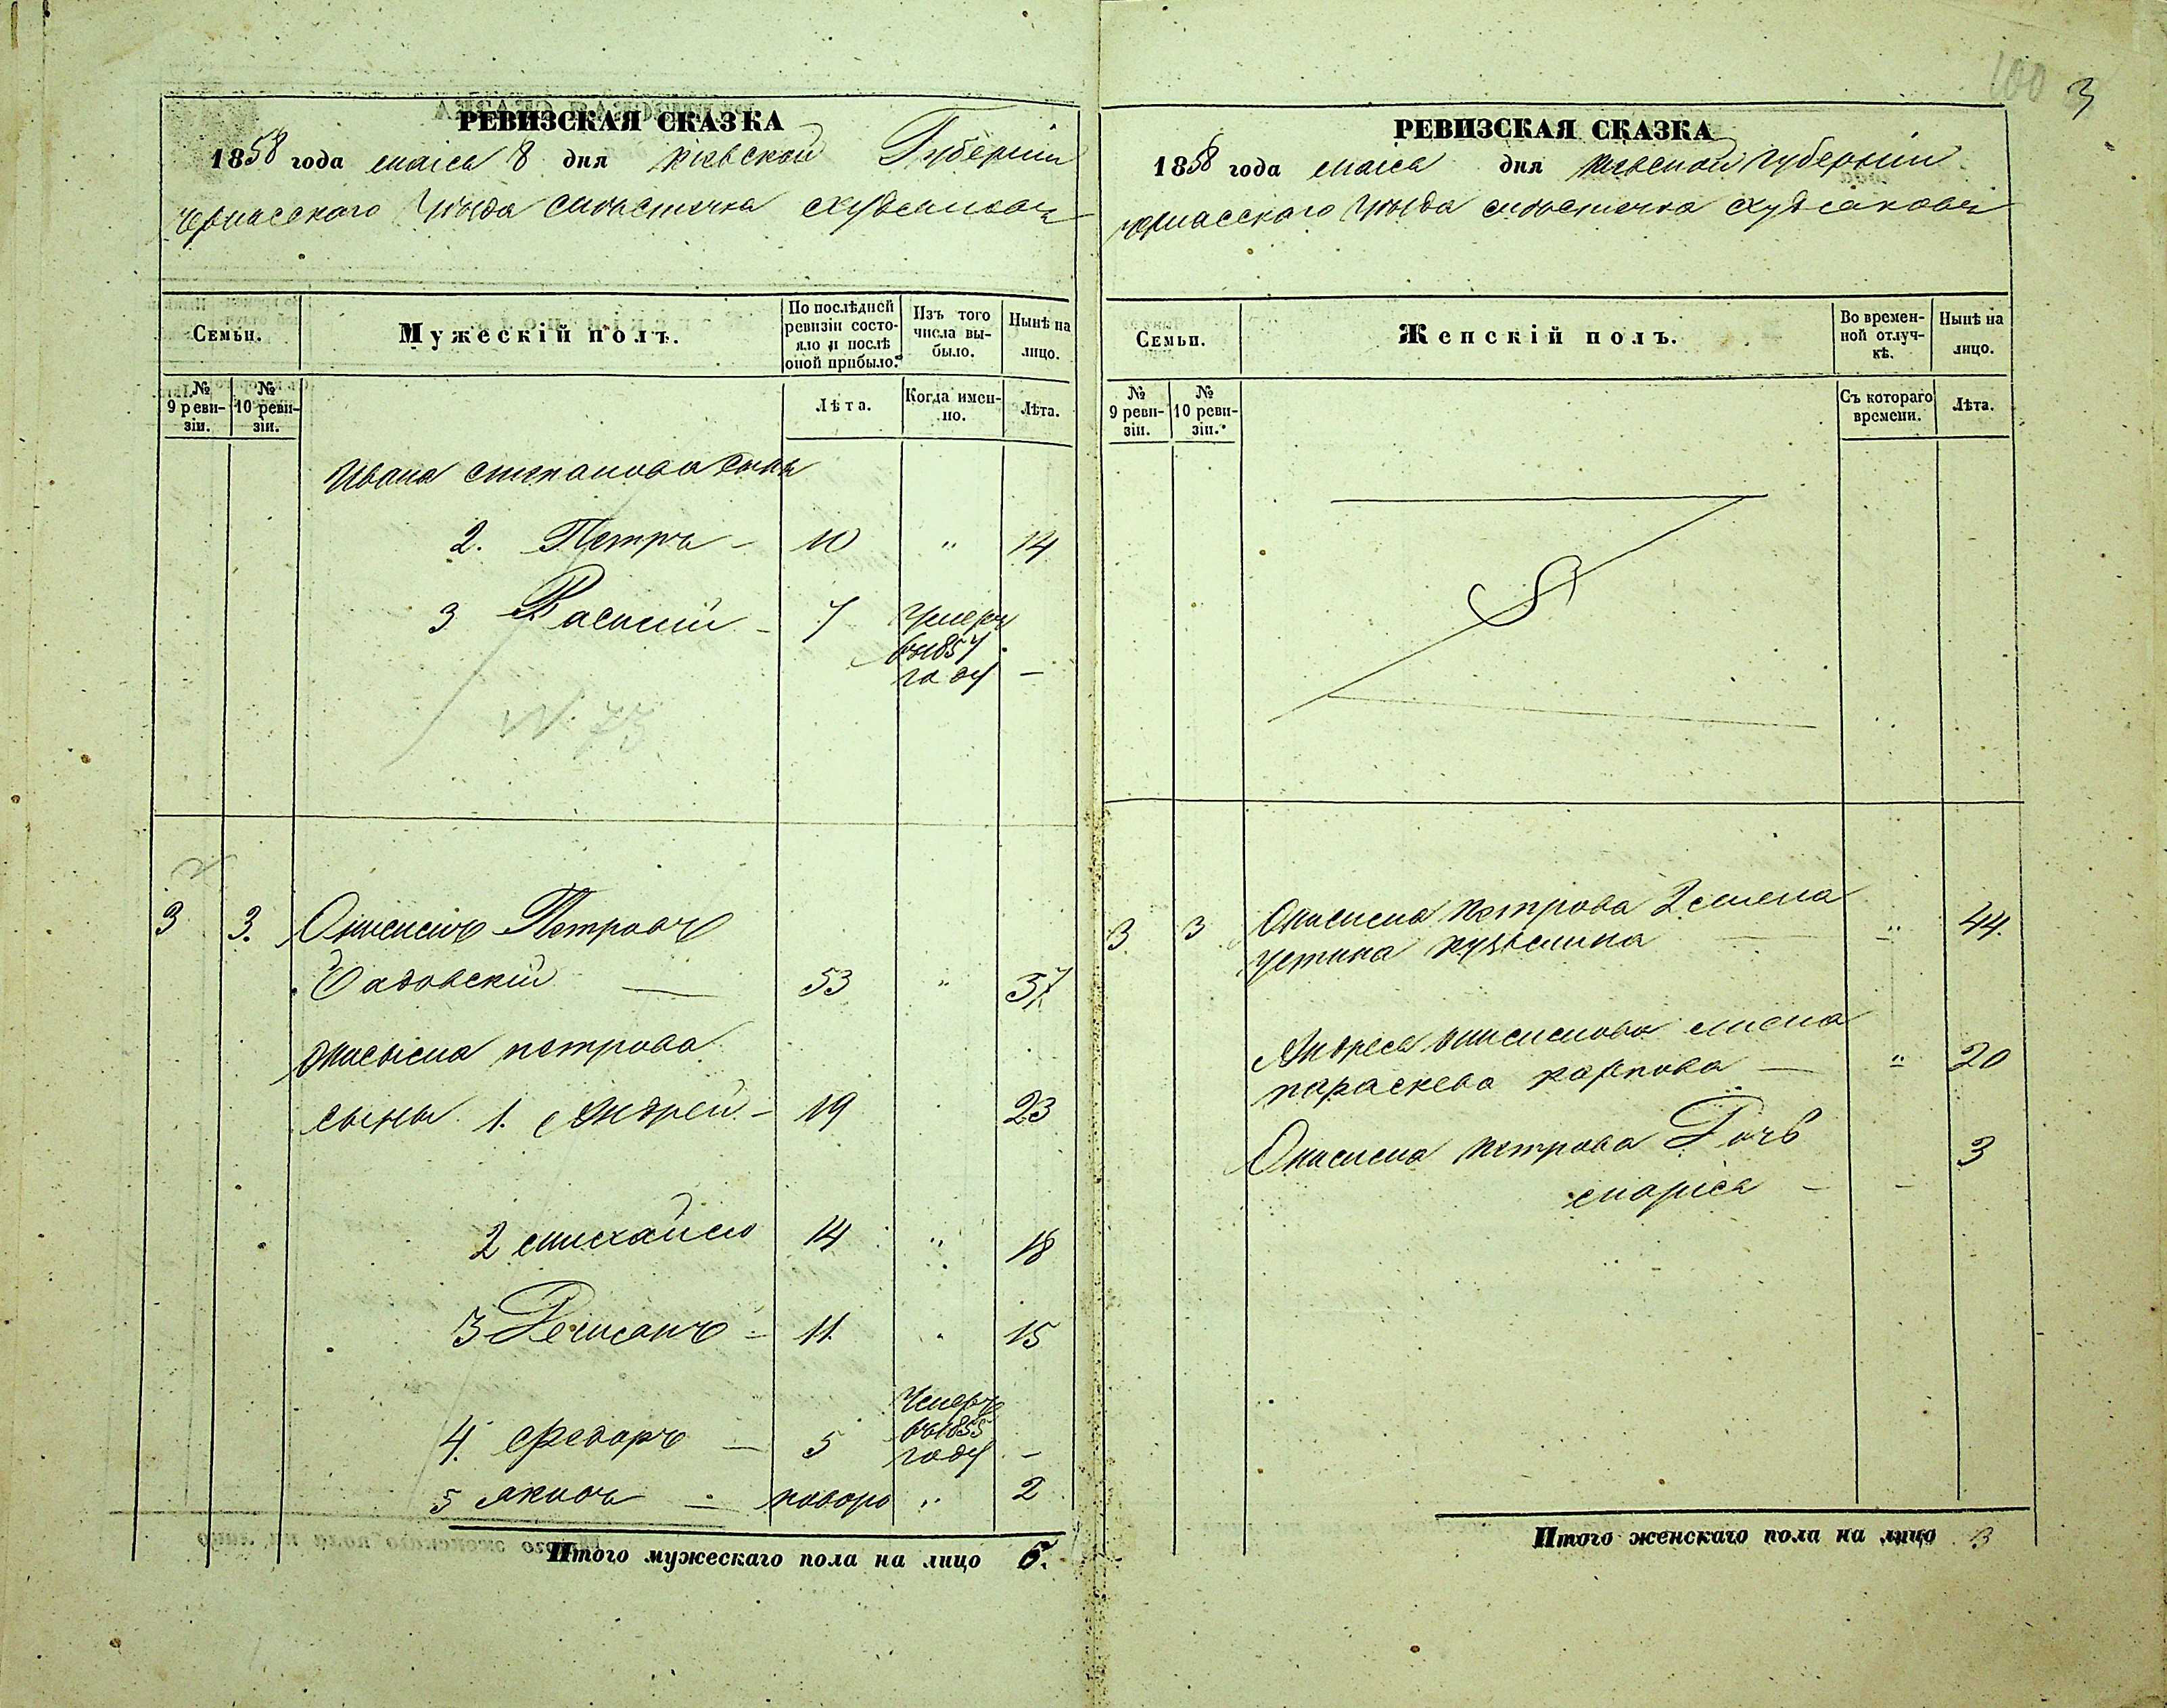 100 3
РЕВИЗСКАЯ СКАЗКА
1858 года маія 8 дня Кіевской Губерніи
Черкасскаго Уѣзда мѣстечка Худяковъ
Семьи.
Мужескій полъ.
По послѣдней ревизіи состояло и послѣ оной прибыло.
Изъ того числа выбыло.
Нынѣ на лицо.
№ 9 ревизіи.
№ 10 ревизіи.
Лѣта.
Когда именно.
Лѣта.
Ивана Степанова сынъ
2. Петръ - 10 " 14
3 Василій - 7 Умеръ
въ 1857
году -
N. 73
3 3. Онисимъ Петровъ
Садовскій — 53 " 57
Онисима Петрова
сыны 1. Андрей - 19 23
2 Михайло 14 " 18
3 Демианъ - 11. " 15
4. Федоръ — 5 Умеръ
въ 1855
году -
5 Яковъ - новоро " 2
Итого мужескаго пола на лицо 6.
РЕВИЗСКАЯ СКАЗКА
1858 года маія дня Кіевской Губерніи
Черкасскаго Уѣзда мѣстечка Худяковъ
Семьи.
Женскій полъ.
Во временной отлучкѣ.
Нынѣ на лицо.
№ 9 ревизіи.
№ 10 ревизіи.
Съ котораго времени.
Лѣта.
3 3 Онисима Петрова 2 жена
Устина Кузьмина " 44.
Андрея Онисимова жена
Параскева Карпова — " 20
Онисима Петрова Дочь 3
Марія - -
Итого женскаго пола на лицо 3